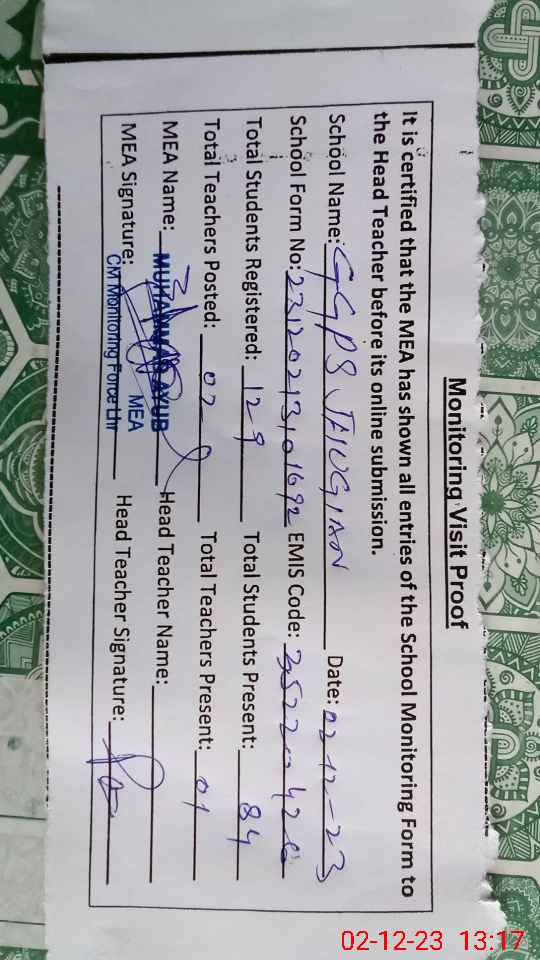 Monitoring Visit Proof
It is certified that the MEA has shown all entries of the School Monitoring Form to
the Head Teacher before its online submission.
School Name: GGPS JHUGIAN Date: 02-12-23
School Form No: EMIS Code:
Total Students Registered: 129 Total Students Present: 84
Total Teachers Posted: 02 Total Teachers Present: 01
MEA Name: MUHAMMAD AYUB Head Teacher Name:
MEA
MEA Signature: CM Monitoring Force Lhr Head Teacher Signature:
02-12-23 13:17